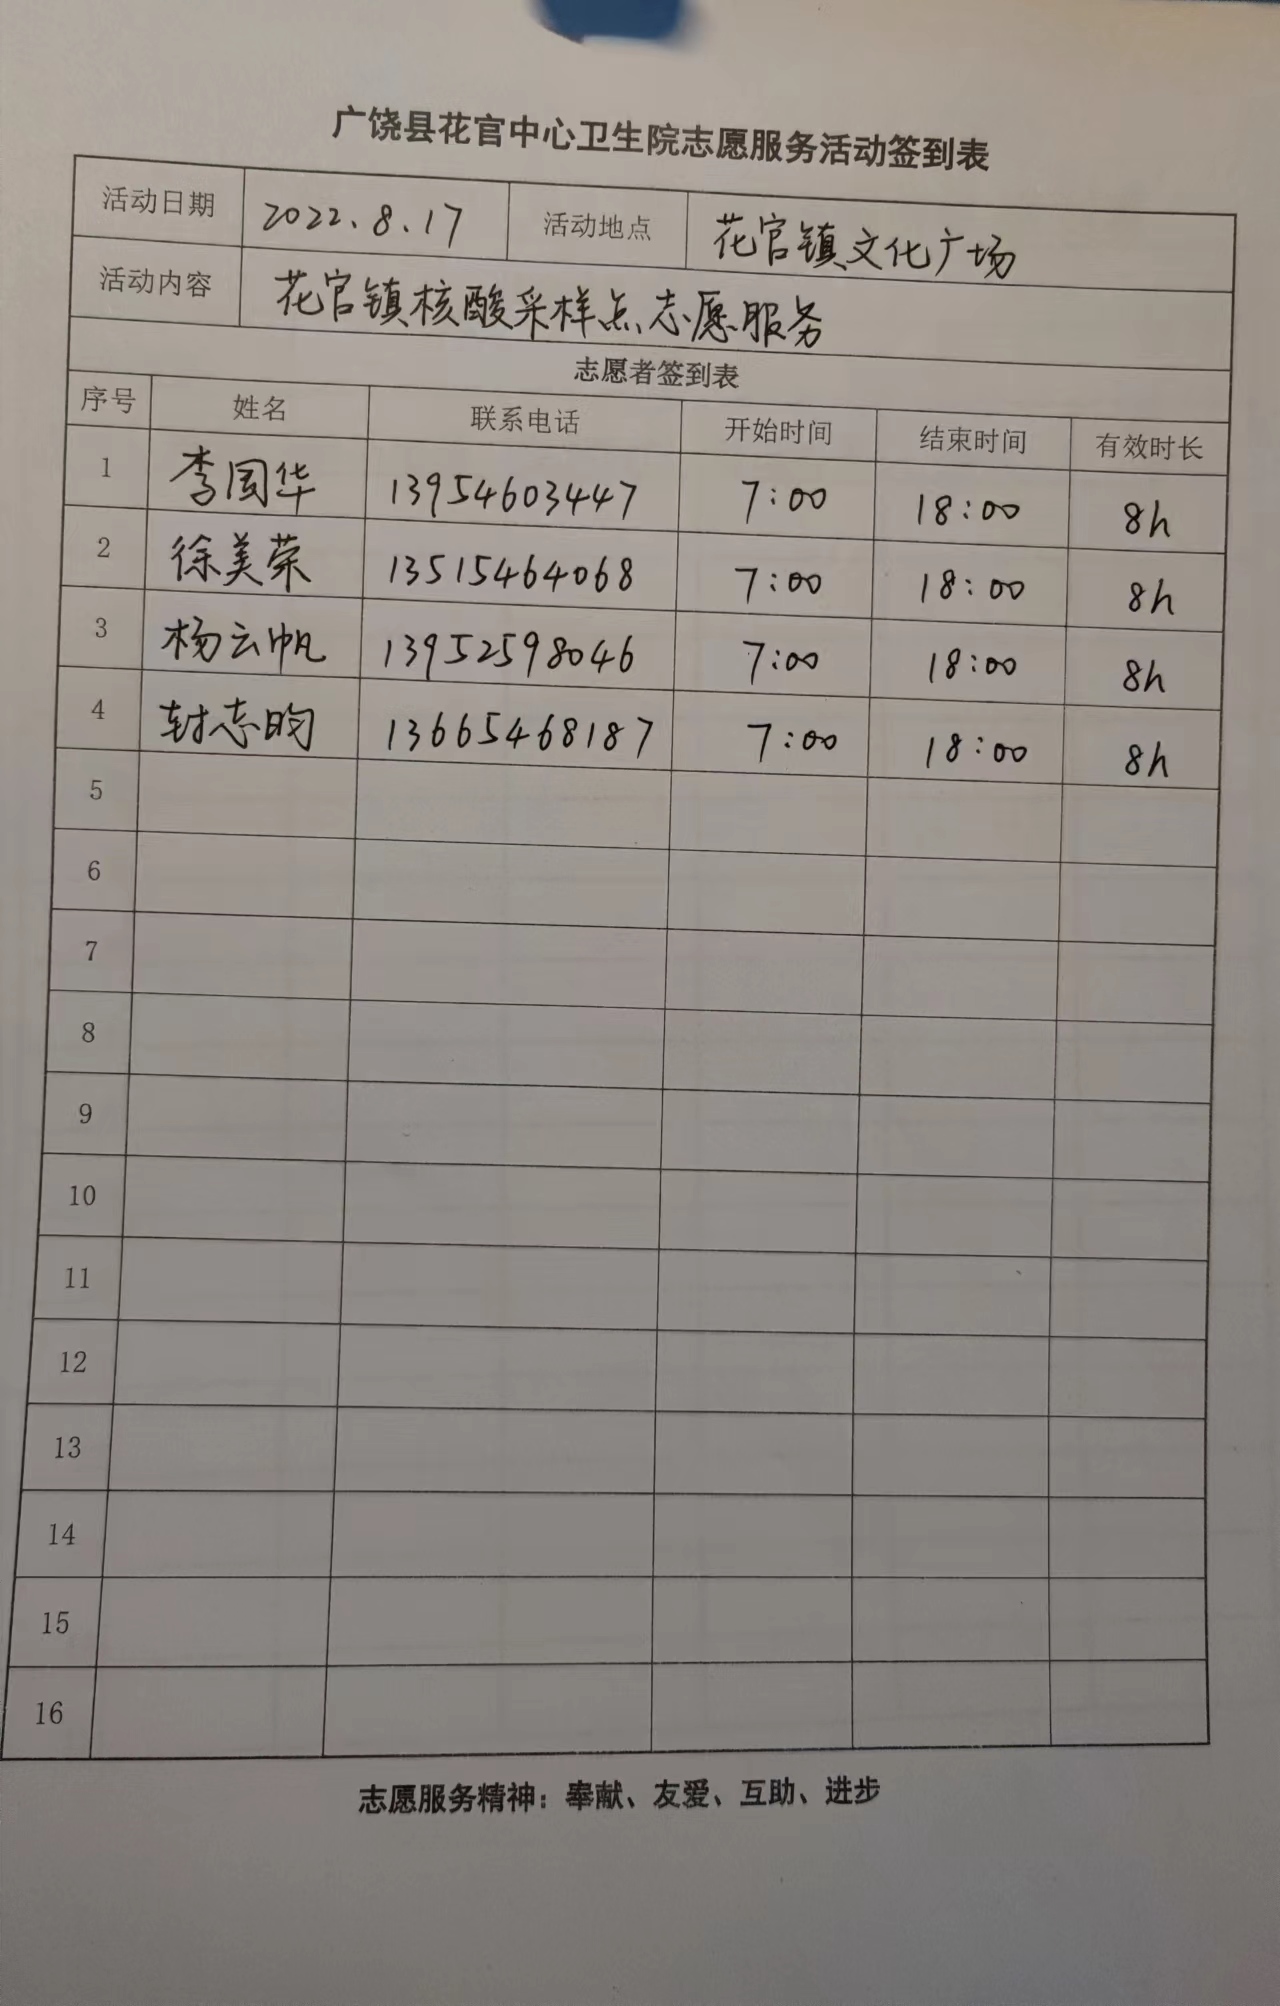 广饶县花官中心卫生院志愿服务活动签到表
活动日期 2022.8.17 活动地点 花官镇文化广场
活动内容 花官镇核酸采样点志愿服务
志愿者签到表
序号 姓名 联系电话 开始时间 结束时间 有效时长
1 李国华 13954603447 7:00 18:00 8h
2 徐美荣 13515464068 7:00 18:00 8h
3 杨云帆 13952598046 7:00 18:00 8h
4 封志昀 13665468187 7:00 18:00 8h
5
6
7
8
9
10
11
12
13
14
15
16
志愿服务精神：奉献、友爱、互助、进步